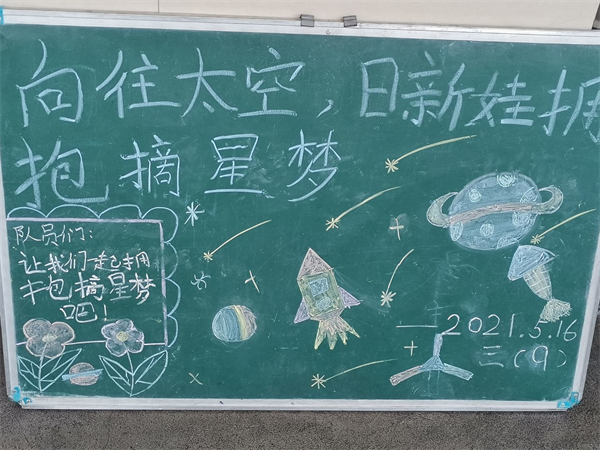 向往太空，日新娃拥
抱摘星梦
队员们：
让我们一起拥
抱摘星梦
吧！
2021.5.16
三（9）